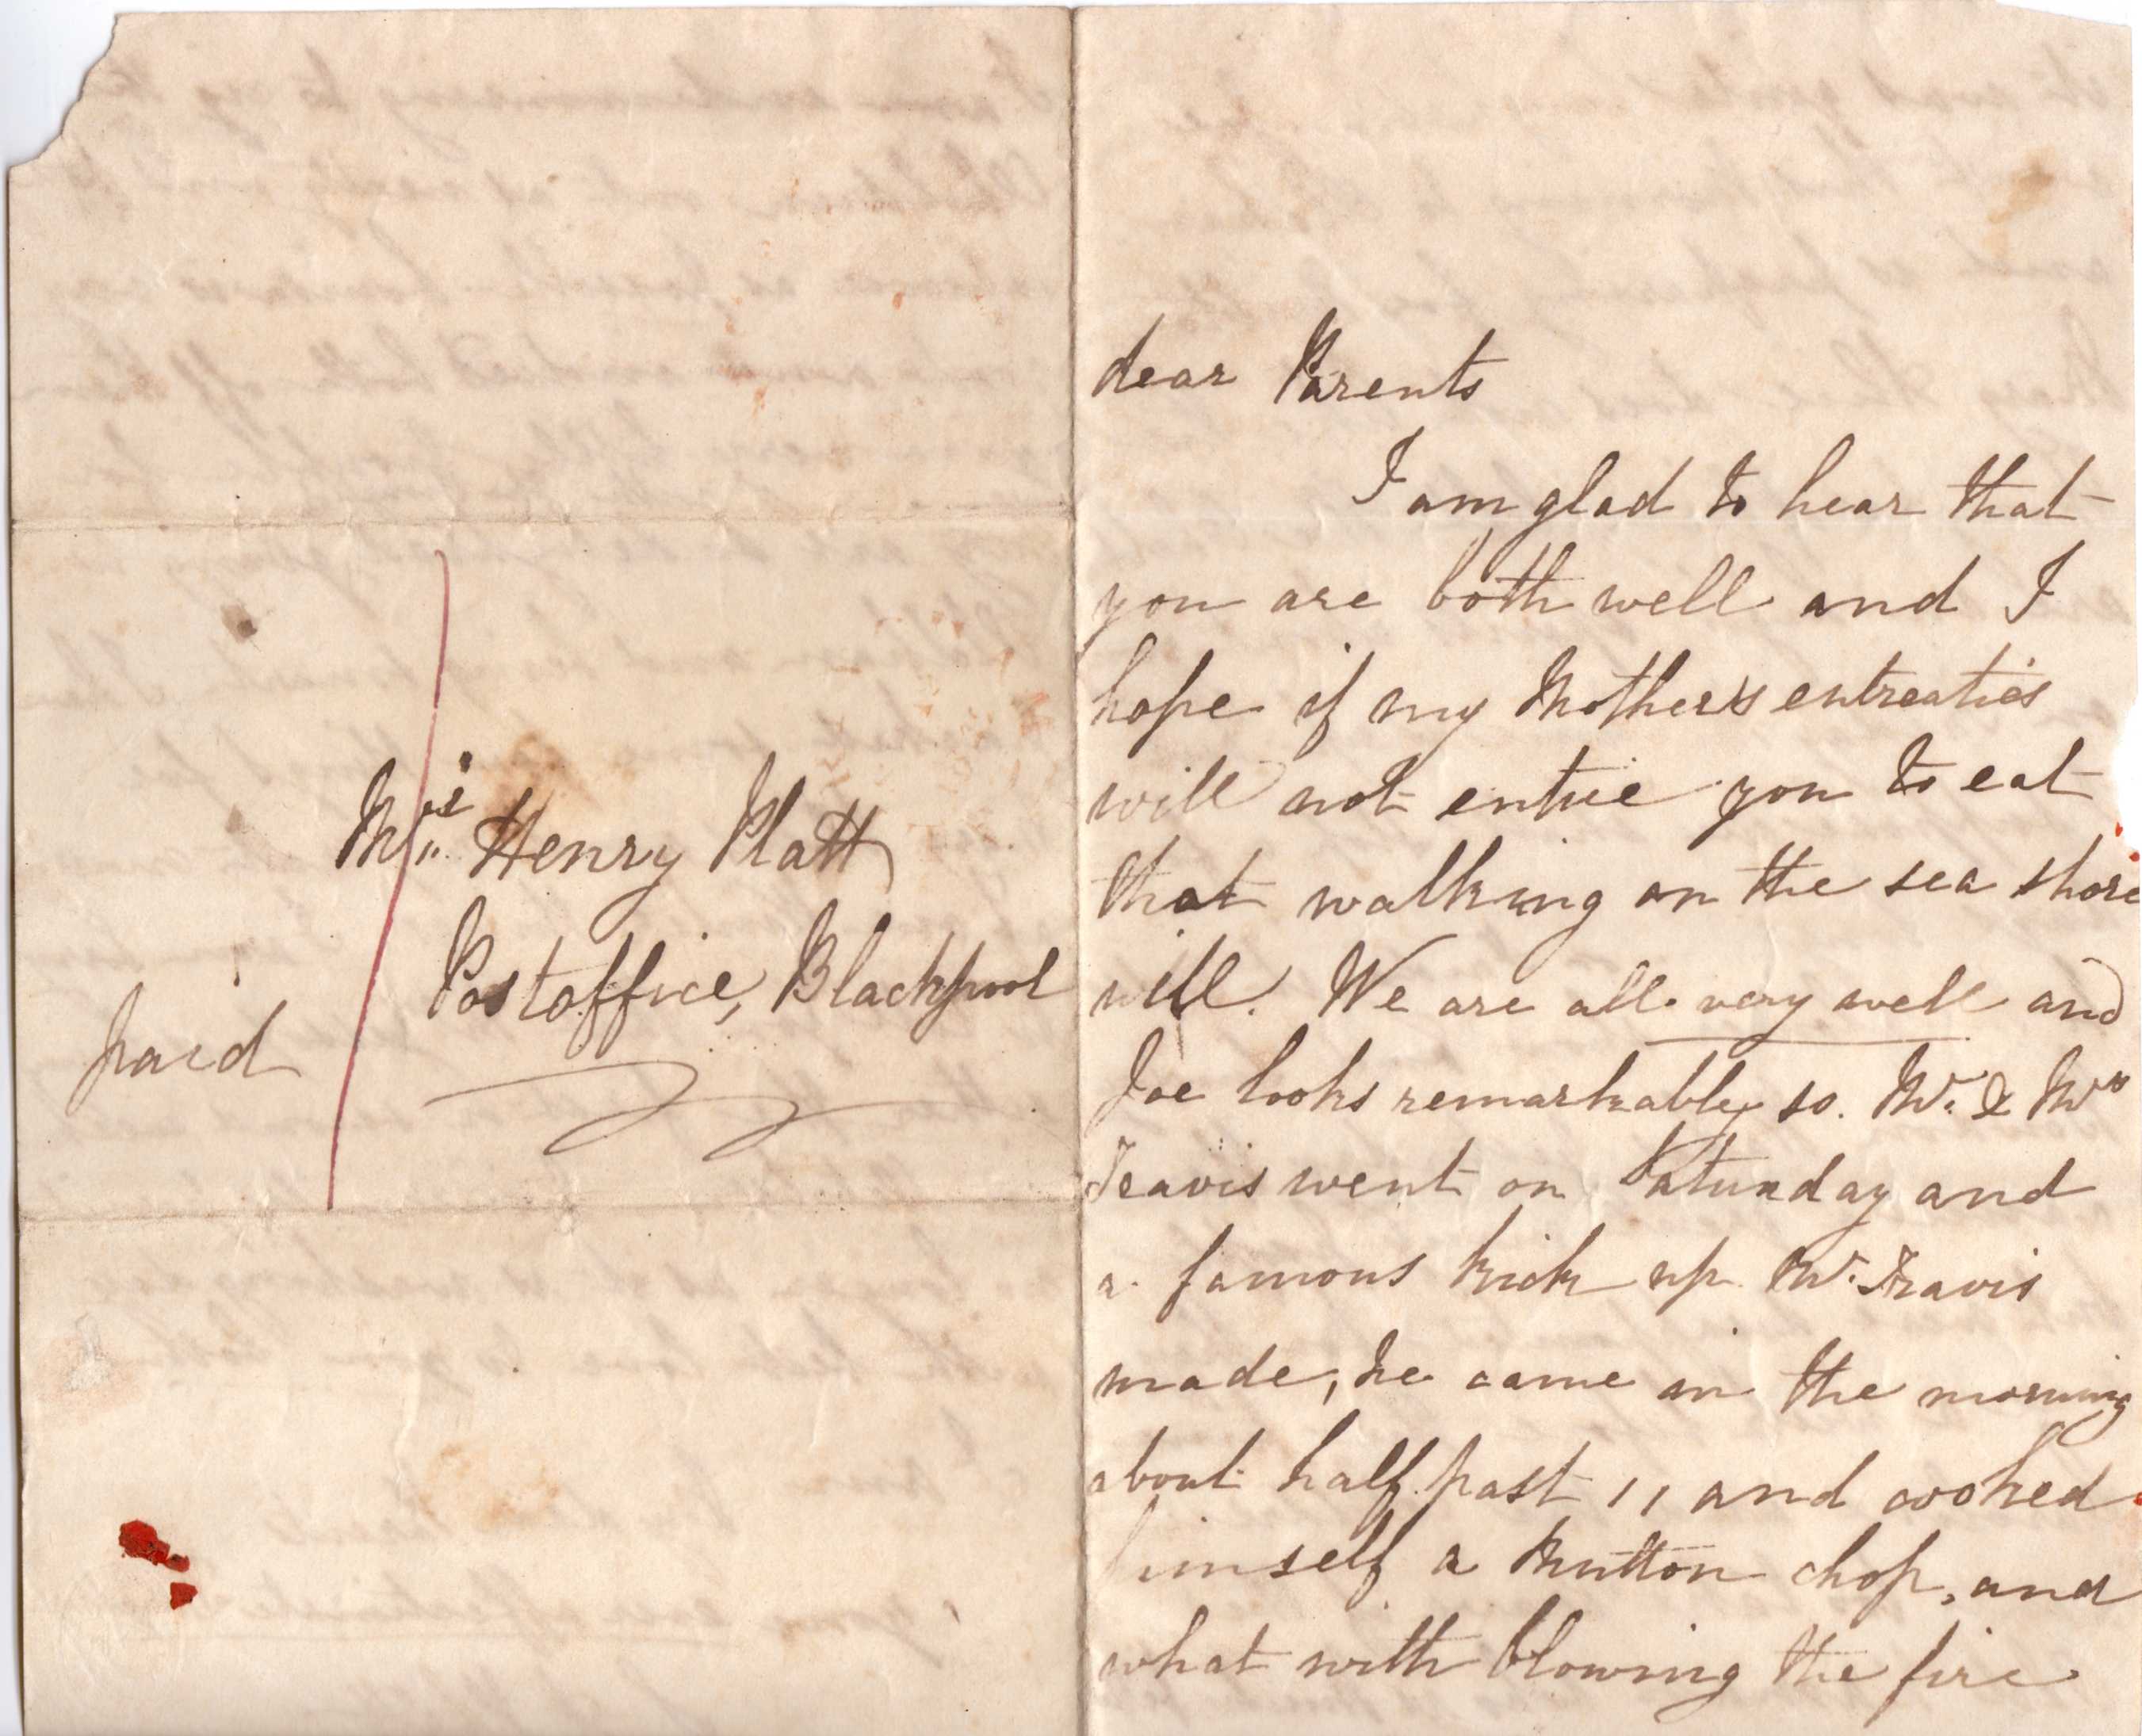 Mrs Henry Platt
Postoffice, Blackpool
paid
dear Parents
I am glad to hear that
you are both well and I
hope if my Mother's entreaties
will not entice you to eat
that walking on the sea shore
will. We are all very well and
Joe looks remarkably so. Mr. & Mrs
Travis went on Saturday and
a famous kick up Mr. Travis
made, he came in the morning
about half past 11 and cooked
himself a Mutton chop, and
what with blowing the fire